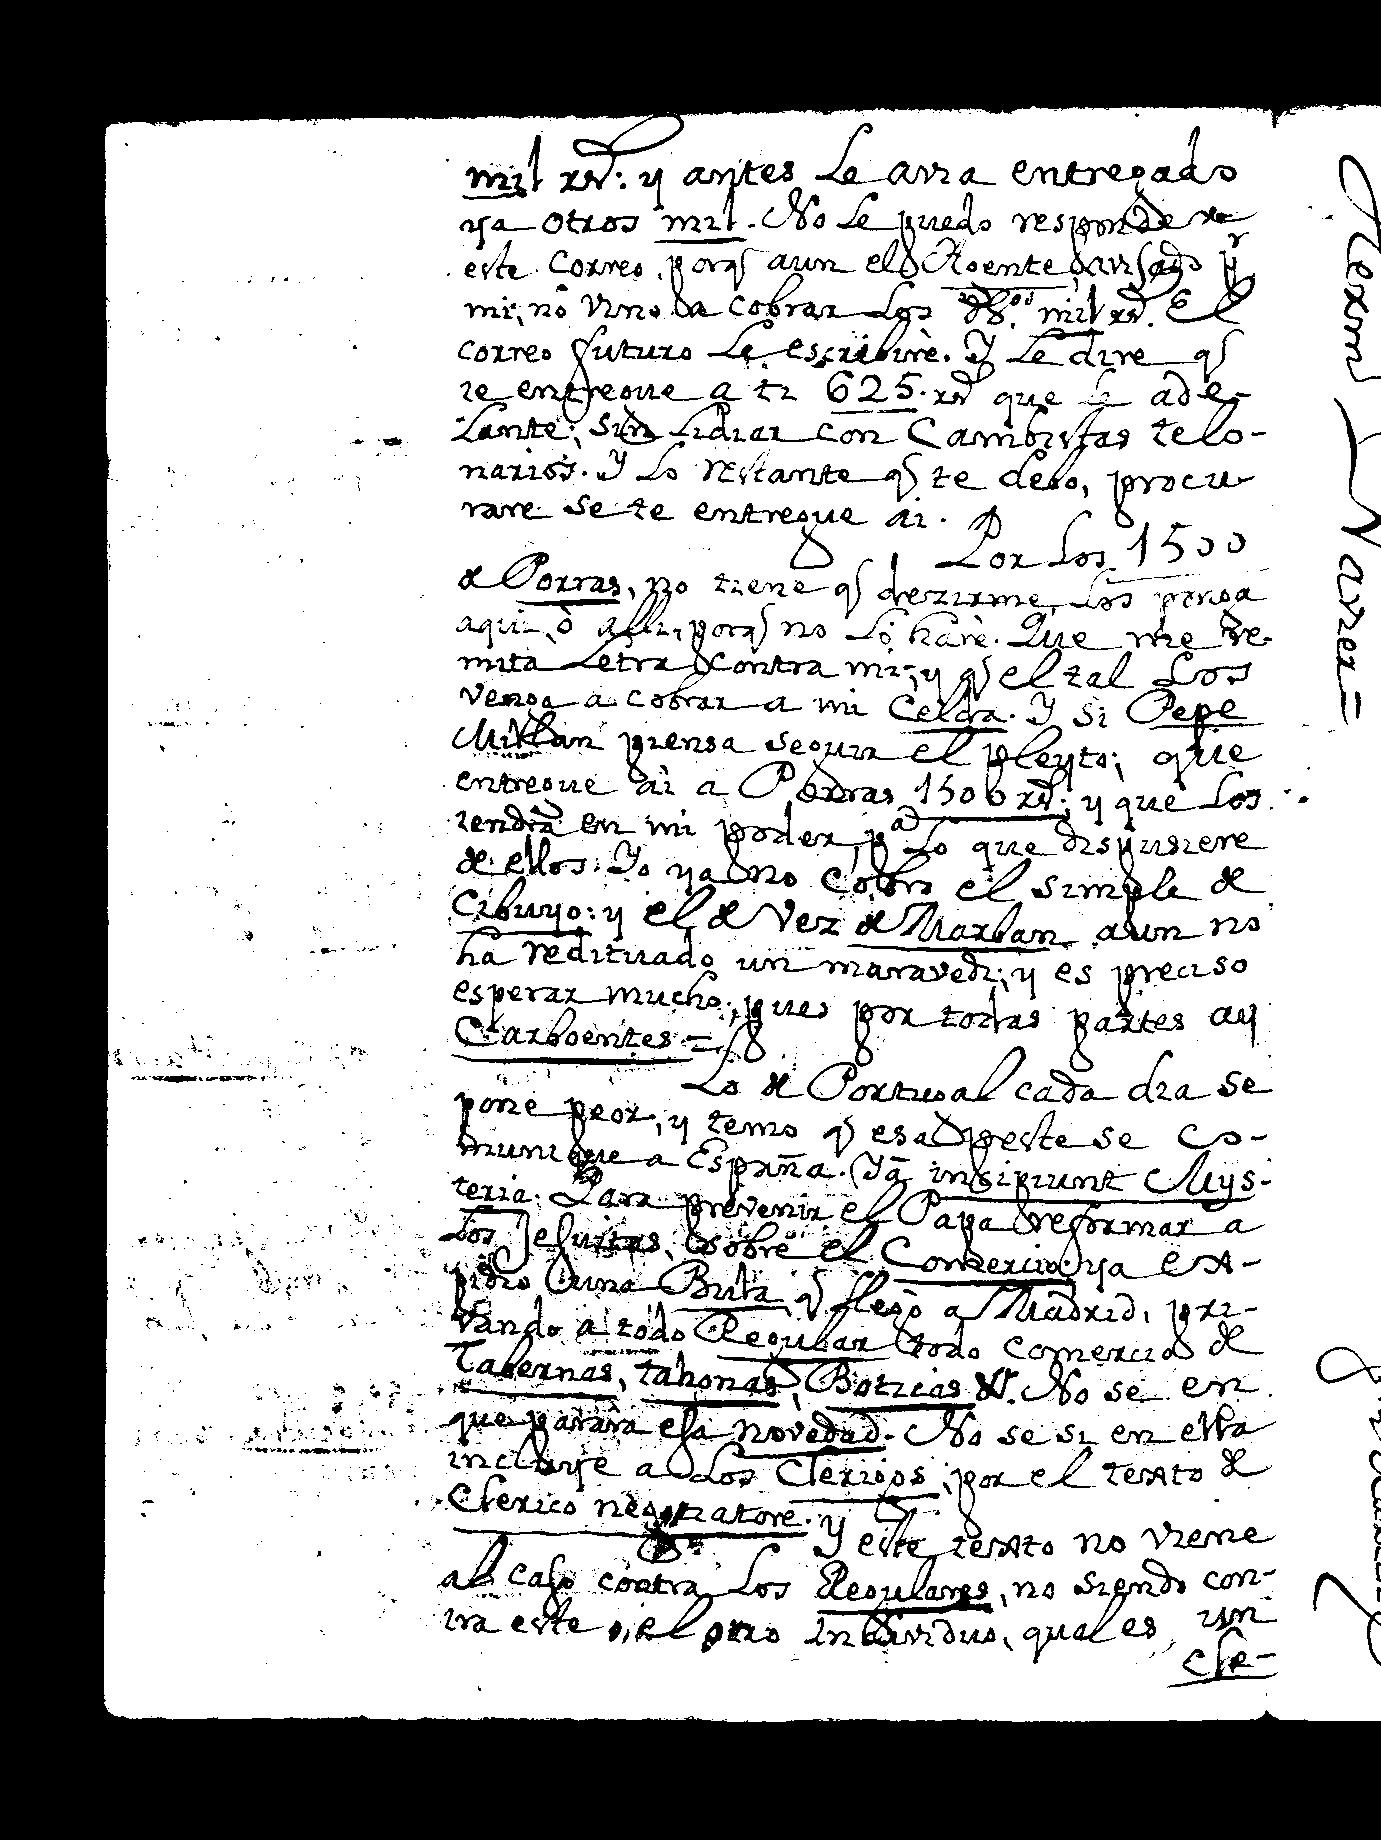 mil rs: y antes le avia entregado
ya otros mil. No le puedo responder
este Correo, porq aun el Agente avisado pr
mi, nò vino a cobrar los dhos mil rs. El
correo futuro le escribirè. Y le dire q
te entregue a ti 625. rs que le ade-
lante; sin lidiar con Cambistas telo-
narios. Y lo restante q te debo, procu-
rare se te entregue ai.
Por los 1500
de Porras, no tiene q dezirme, los ponga
aqui, ò alli, porq no lo harè. Que me re-
mita Letra contra mi; y q el tal los
venga a cobrar a mi Celda. Y si Pepe
Millan piensa seguir el pleyto; que
entregue ai a Porras 1500 rs; y que los
tendrà en mi poder, pa lo que dispusiere
de ellos. Yo ya no cobro el simple de
Cibuyo: y el de Vez de Marban aun no
ha redituado un maravedi; y es preciso
esperar mucho; pues por todas partes ay
Cargoentes =
Lo de Portugal cada dia se
pone peor, y temo q esa peste se co-
munique a España. Ya insipiunt Mys-
teria. Para prevenir el Papa reformar a
los Jesuitas, sobre el Comercio: ya ex-
pidio una Bula q llegò a Madrid, pri-
vando a todo Regular todo comercio de
Tabernas, tahonas, Boticas &. No se en
que pararà esa novedad. No se si en ella
incluye a los Clerigos; por el texto de
Clerico negotiatore. Y este texto no viene
al caso contra los Regulares, no siendo con-
tra este, ò, el otro individuo, qual es, un
Cle-